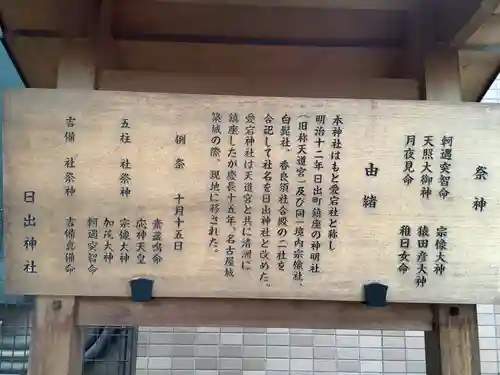 祭神
軻遇突智命　宗像大神
天照大御神　猿田彦大神
月夜見命　稚日女命
由緒
本神社はもと愛宕社と称し
明治十二年日出町鎮座の神明社
（旧称天道宮）及び同一境内宗像社、
白髭社、香良須社合殿の二社を
合祀して社名を日出神社と改めた。
愛宕神社は天道宮と共に清洲に
鎮座したが慶長十五年、名古屋城
築城の際、現地に移された。
例祭　十月十五日
素盞鳴命
応神天皇
五柱　社祭神　宗像大神
加茂大神
軻遇突智命
吉備　社祭神　吉備真備命
日出神社